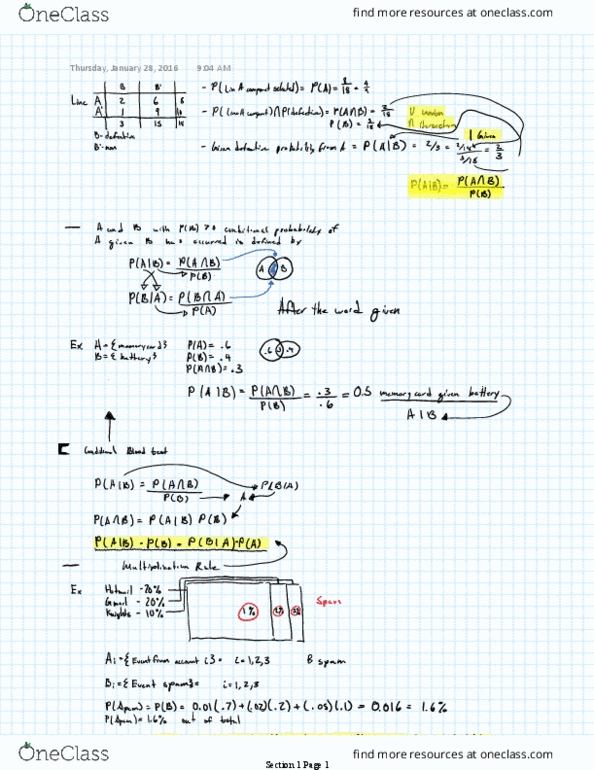 OneClass
find more resources at oneclass.com
Thursday, January 28, 2016 9:04 AM
B B'
Line A 2 6 8
A' 1 9 10
3 15 18
B- defective
B'- non
- P(Line A component selected) = P(A) = 8/18 = 4/9
- P(Line A component) ∩ P(defective) = P(A∩B) = 2/18
P(B) = 3/18
U union
∩ intersection
| Given
- Given defective probability from A = P(A|B) = 2/3 = 2/18 / 3/18 = 2/3
P(A|B) = P(A∩B) / P(B)
— A and B with P(B) > 0 conditional probability of
A given B has occurred is defined by
P(A|B) = P(A∩B) / P(B)
A B
P(B|A) = P(B∩A) / P(A)
After the word given
Ex A = {memory card} P(A) = .6
B = { battery} P(B) = .4
P(A∩B) = .3
.6 .3 .4
P(A|B) = P(A∩B) / P(B) = .3 / .6 = 0.5 memory card given battery
A|B
Blood test
P(A|B) = P(A∩B) / P(B) A P(B|A)
P(A∩B) = P(A|B) P(B)
P(A|B) · P(B) = P(B|A) · P(A)
— Multiplication Rule
Ex Hotmail - 70%
Gmail - 20%
Knights - 10%
1% 2% Spam
Ai = { Event from account i} = i = 1, 2, 3 B spam
Bi = { Event spam} = i = 1, 2, 3
P(Spam) = P(B) = 0.01(.7) + (.02)(.2) + (.05)(.1) = 0.016 = 1.6%
P(Spam) = 1.6% out of total
OneClass
find more resources at oneclass.com
Section 1 Page 1